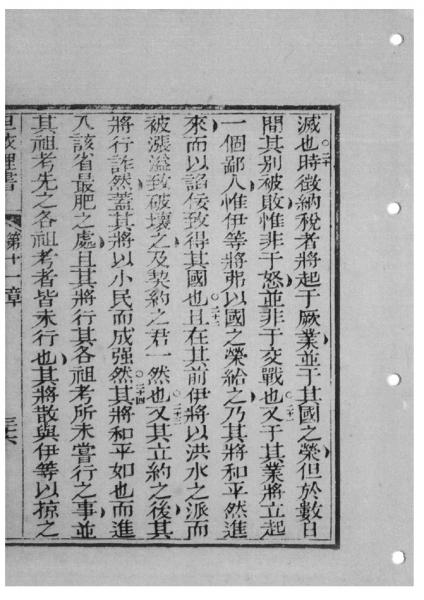 滅也時徵納稅者將起于厥業並于其國之榮但於數日
間其別被敗惟非于怒並非于交戰也又于其業將立起
一個鄙人惟伊等將弗以國之榮給之乃其將和平然進
來而以諂佞致得其國也且在其前伊將以洪水之派而
被漲溢致破壞之及契約之君一然也又其立約之後其
將行詐然蓋其將以小民而成强然其將和平如也而進
入該省最肥之處且其將行其各祖考所未嘗行之事並
其祖考先之各祖考者皆未行也其將散與伊等以掠之
第十一章 三六